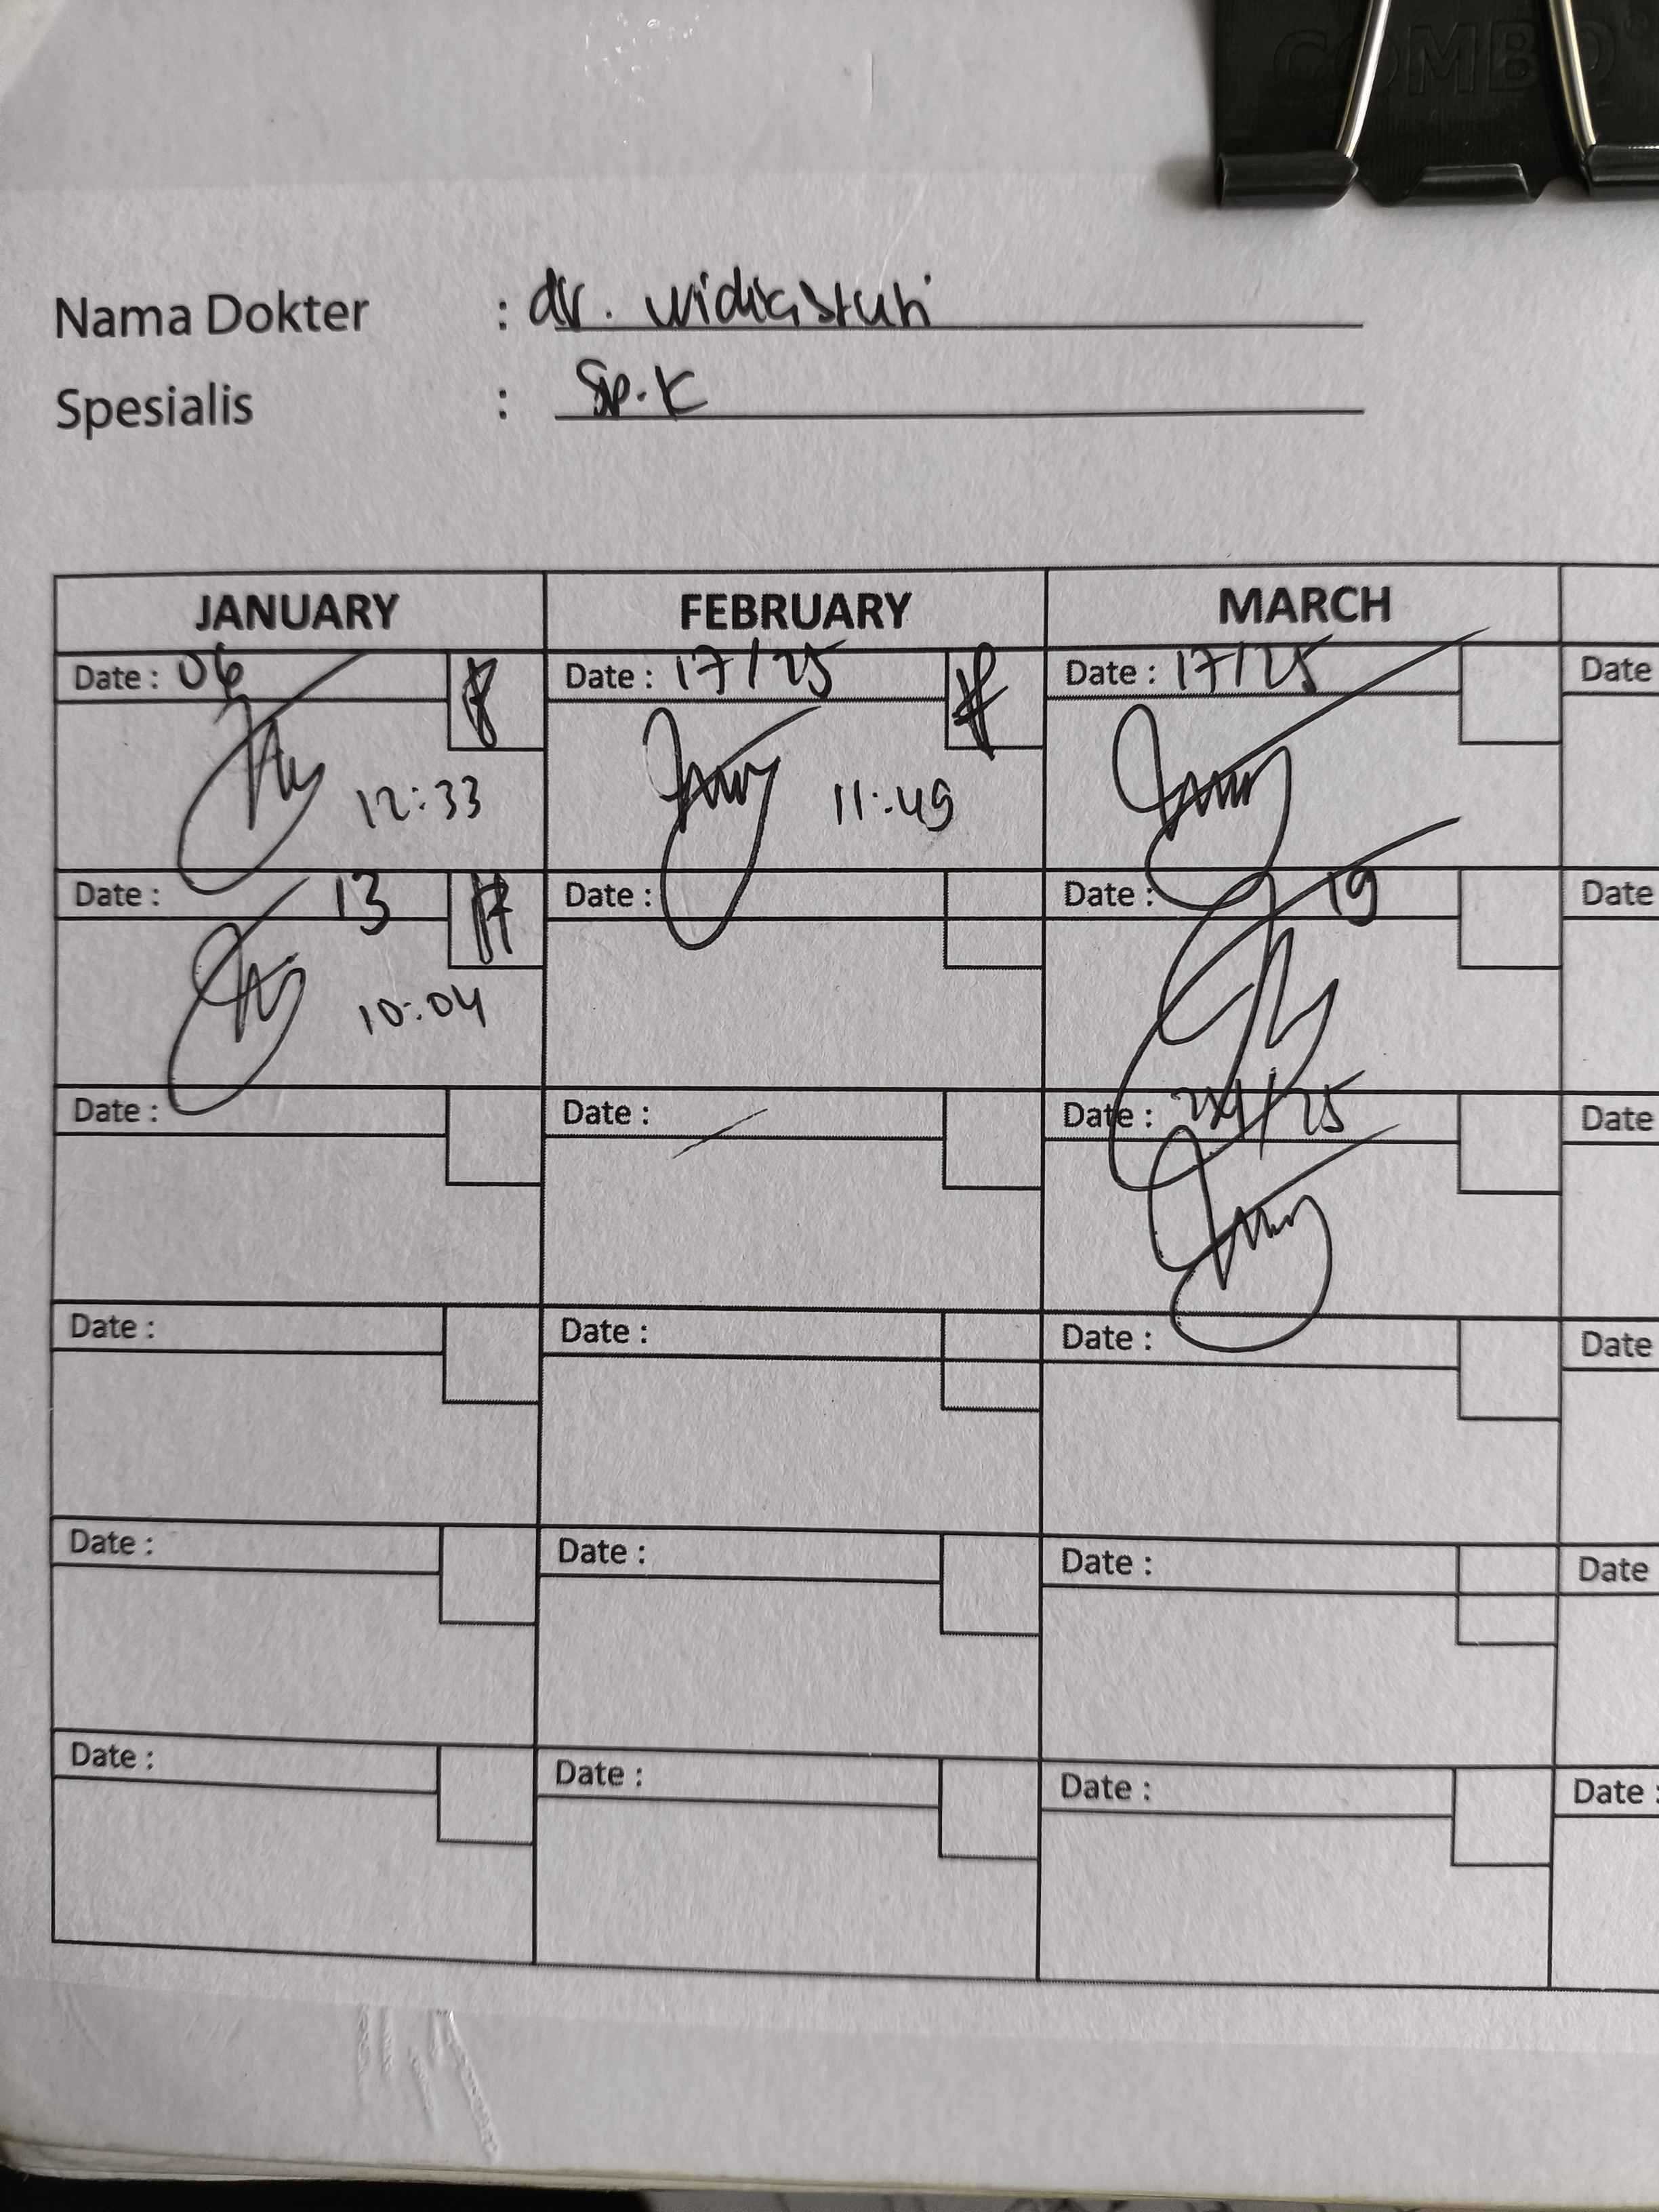 COMBO
Nama Dokter : dr. widiastuti
Spesialis : Sp.K
JANUARY FEBRUARY MARCH
Date : 06 Date : 17/25 Date : 17/25 Date
12:33 11:49
Date : 13 Date : Date : 19 Date
10:04
Date : Date : Date : 24/25 Date
Date : Date : Date : Date
Date : Date : Date : Date
Date : Date : Date : Date :